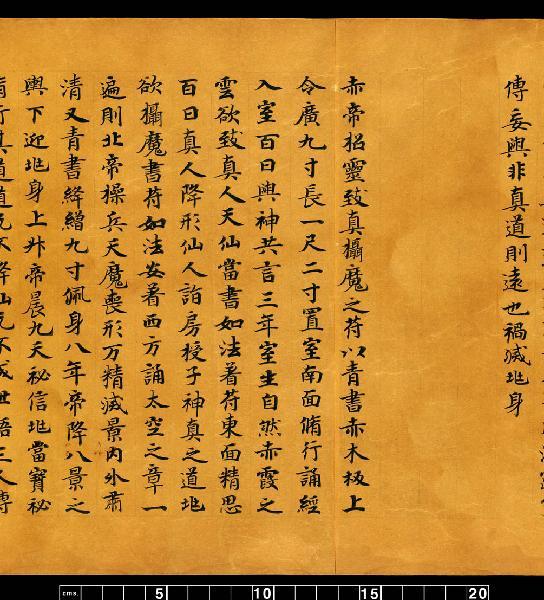 傳妄與非真道則遠也禍滅兆身
赤帝招靈致真攝魔之苻以青書赤木板上
令廣九寸長一尺二寸置室南面脩行誦經
入室百日與神共言三年室生自然赤霞之
雲欲致真人天仙當書如法著苻東面精思
百日真人降形仙人詣房授子神真之道兆
欲攝魔書苻如法安著西方誦太空之章一
遍則北帝操兵天魔喪形万精滅景內外肅
清又青書絳繒九寸佩身八年帝降八景之
輿下迎兆身上升帝晨九天秘信兆當寶秘
cms. 5 10 15 20